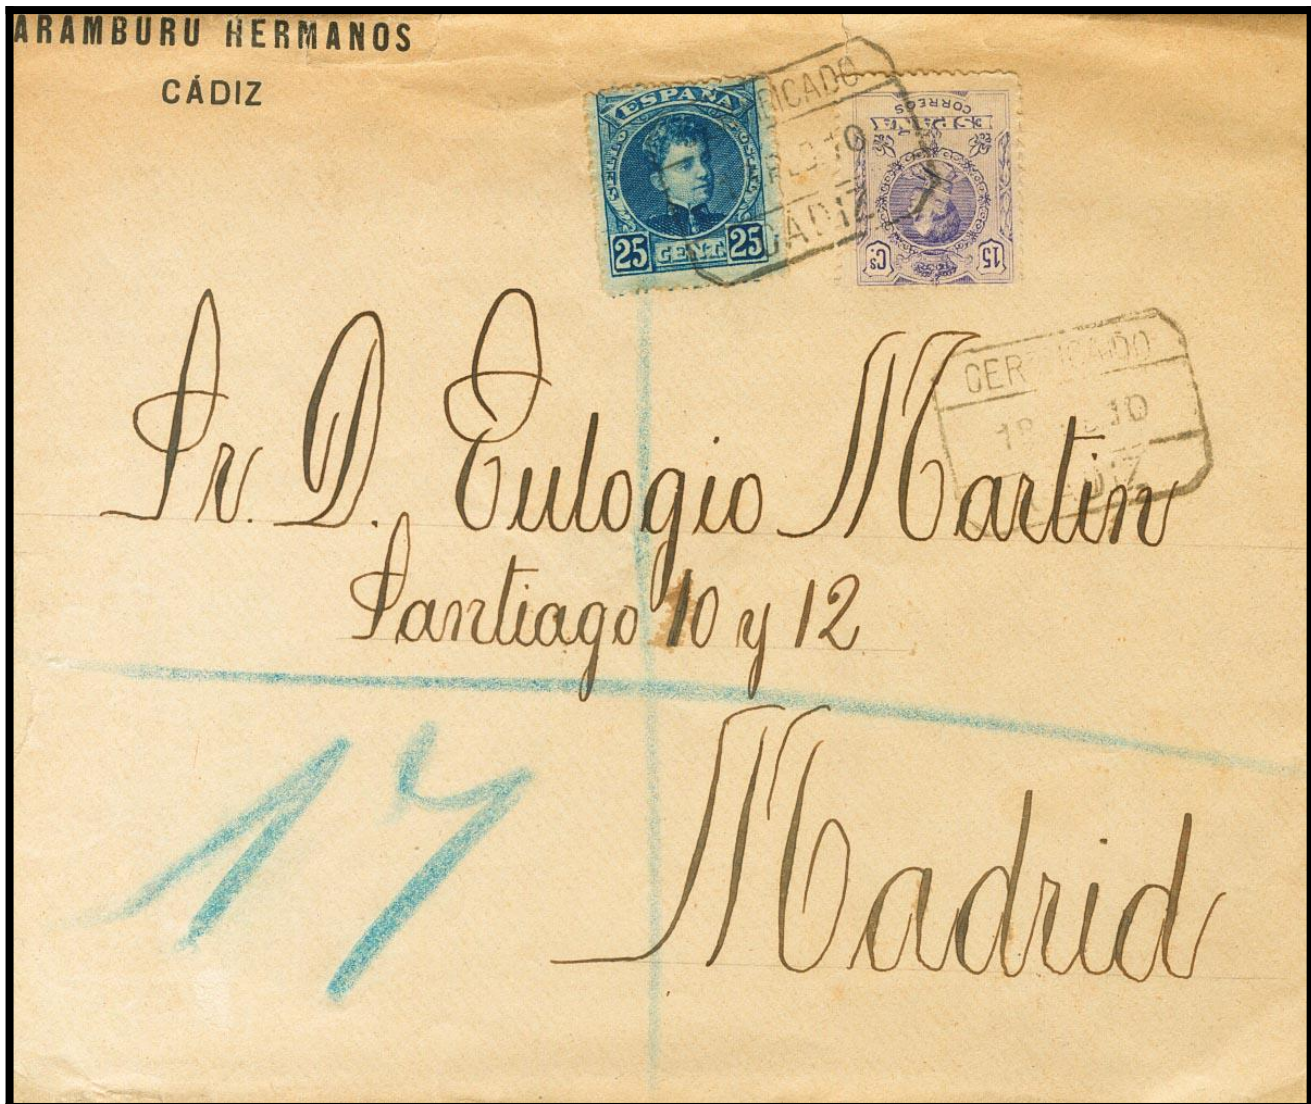 ARAMBURU HERMANOS
CÁDIZ
ESPAÑA
25 CENT. 25
CORREOS
15 Cs.
CÁDIZ
CERTIFICADO
18 10
Sr. D. Eulogio Martin
Santiago 10 y 12
17
Madrid